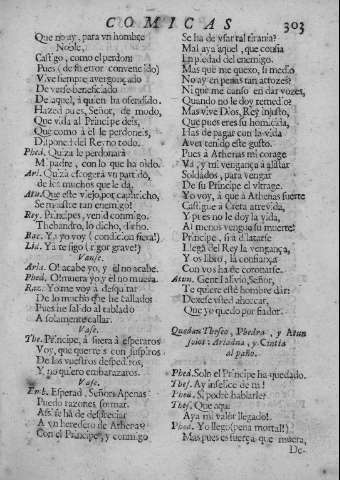 COMICAS 303
Que no ay, para vn hombre
Noble,
Castigo, como el perdon:
Pues (de su error convencido)
Vive siempre avergonçado
De verse beneficiado
De aquel, à quien ha ofendido.
Hazed pues, Señor, de modo,
Que vida al Principe deis,
Que como à èl le perdoneis,
Disponed del Rey no todo.
Phed. Quizà le perdonarà
Mi padre, con lo que ha oido.
Ari. Quizà escogerà vn partido,
de los muchos que le dà.
Atu. Que este viejo, por capricho,
Se muestre tan enemigo!
Rey. Principes, venid conmigo.
Thebandro, lo dicho, dicho.
Bac. Ya yo voy (condicion fiera!)
Lid. Ya te sigo (rigor grave!)
Vanse.
Aria. O! acabe yo, y èl no acabe.
Phed. O! muera yo, y èl no muera.
Raz. Yo me voy à despartar
De lo mucho que he callado;
Pues he salido al tablado
A solamente callar.
Vase.
The. Principe, à fuera à esperaros
Voy, que querreis con suspiros
De las vuestras despediros,
Y no quiero embarazaros.
Vase.
Emb. Esperad, Señor: Apenas
Puedo razones formar.
Assi se ha de despreciar
A vn heredero de Athenas?
Con el Principe, y conmigo
Se ha de vsar tal tirania?
Mal aya aquel, que confia
En piedad del enemigo.
Mas què me quexo, si medio
No ay en penas tan atrozes?
Ni què me canso en dar vozes,
Quando no le doy remedio?
Mas vive Dios, Rey injusto,
Que pues eres su homicida,
Has de pagar con la vida
Aver tenido este gusto.
Pues à Athenas mi corage
Và, y mi vengança à alistar
Soldados, para vengar
De su Principe el vltrage.
Yo voy, à que à Athenas fuerte
Castigue à Creta atrevida,
Y pues no le doy la vida,
Al menos vengue su muerte.
Principe, si à dilatarse
Llega del Rey la vengança,
Y os libro, la confiança
Con vos ha de coronarse.
Atun. Gentil alivio, Señor,
Te quiere este hombre dar:
Dexese vsted ahorcar,
Que yo quedo por fiador.
Quedan Theseo, Phedra, y Atun
solos: Ariadna, y Cintia
al paño.
Phed. Solo el Principe ha quedado.
Thes. Ay infelice de mi!
Phed. Si podrè hablarle?
Thes. Que aqui
Aya mi valor llegado!
Phed. Yo llego (pena mortal!)
Mas pues es fuerça que muera,
De-